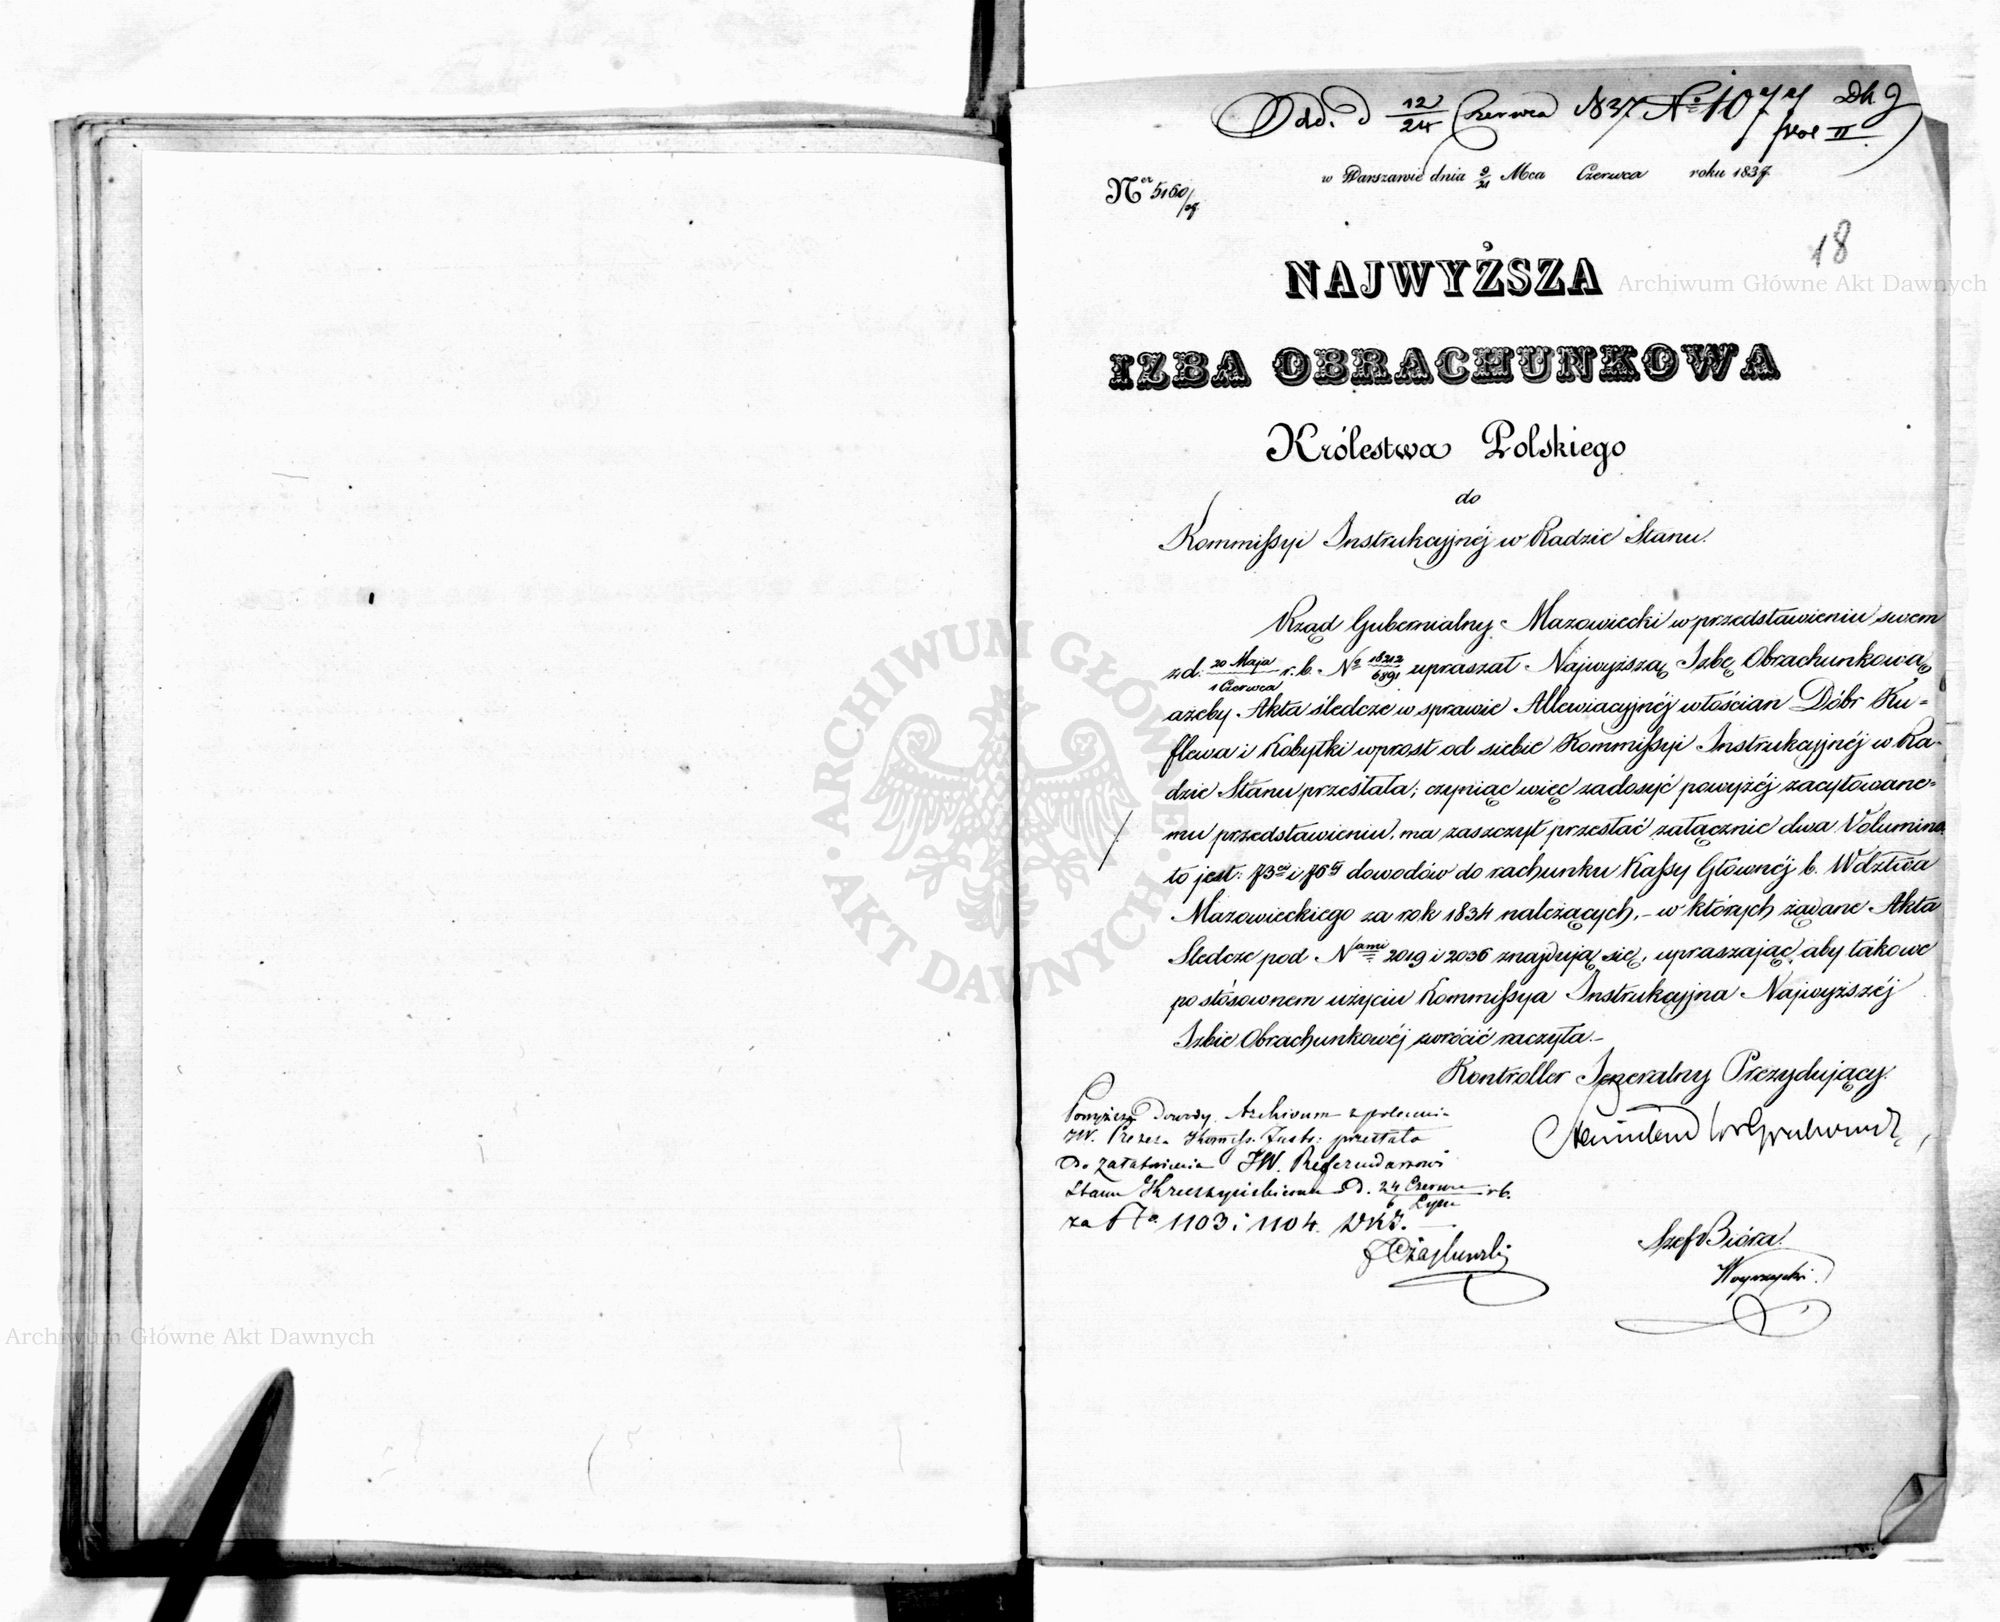 Odd. d 12/24 Czerwca 1837 No 1077
w Warszawie dnia 9/21 Mca Czerwca roku 1837.
Ner 5160
18
NAJWYŻSZA
IZBA OBRACHUNKOWA
Królestwa Polskiego
do
Kommissyi Instrukcyjnéj w Radzie Stanu.
Rząd Gubernialny Mazowiecki w przedstawieniu swem
z d. 20 Maja/1 Czerwca r. b. No 18212/6891 upraszał Najwyższą Izbę Obrachunkową
ażeby Akta śledcze w sprawie Allewiacyjnéj włościan Dóbr Ku-
flewa i Kobyłki wprost od siebie Kommissyi Instrukcyjnéj w Ra-
dzie Stanu przesłała; czyniąc więc zadosyć powyżéj zacytowane-
mu przedstawieniu, ma zaszczyt przesłać załącznie dwa Volumina
to jest: 73ci i 76ty dowodów do rachunku Kassy Głównéj b. Wdztwa
Mazowieckiego za rok 1834 należących, - w których żądane Akta
Sledcze pod Nami 2019 i 2036 znajdują się, upraszając, aby takowe
po stósownem użyciu Kommissya Instrukcyjna Najwyższéj
Izbie Obrachunkowéj zwrócić raczyła.-
Kontroller Jeneralny Prezydujący.
Powyższe Dowody Archivum z polecenia
JW. Prezesa Kommiss. Instr: przesłało
do załatwienia JW. Referendarzowi
Stanu d. 24 Czerwca/6 Lipca r. b.
za No 1103 i 1104.
Szef Bióra.
Archiwum Główne Akt Dawnych
ARCHIWUM GŁÓWNE
AKT DAWNYCH
Archiwum Główne Akt Dawnych